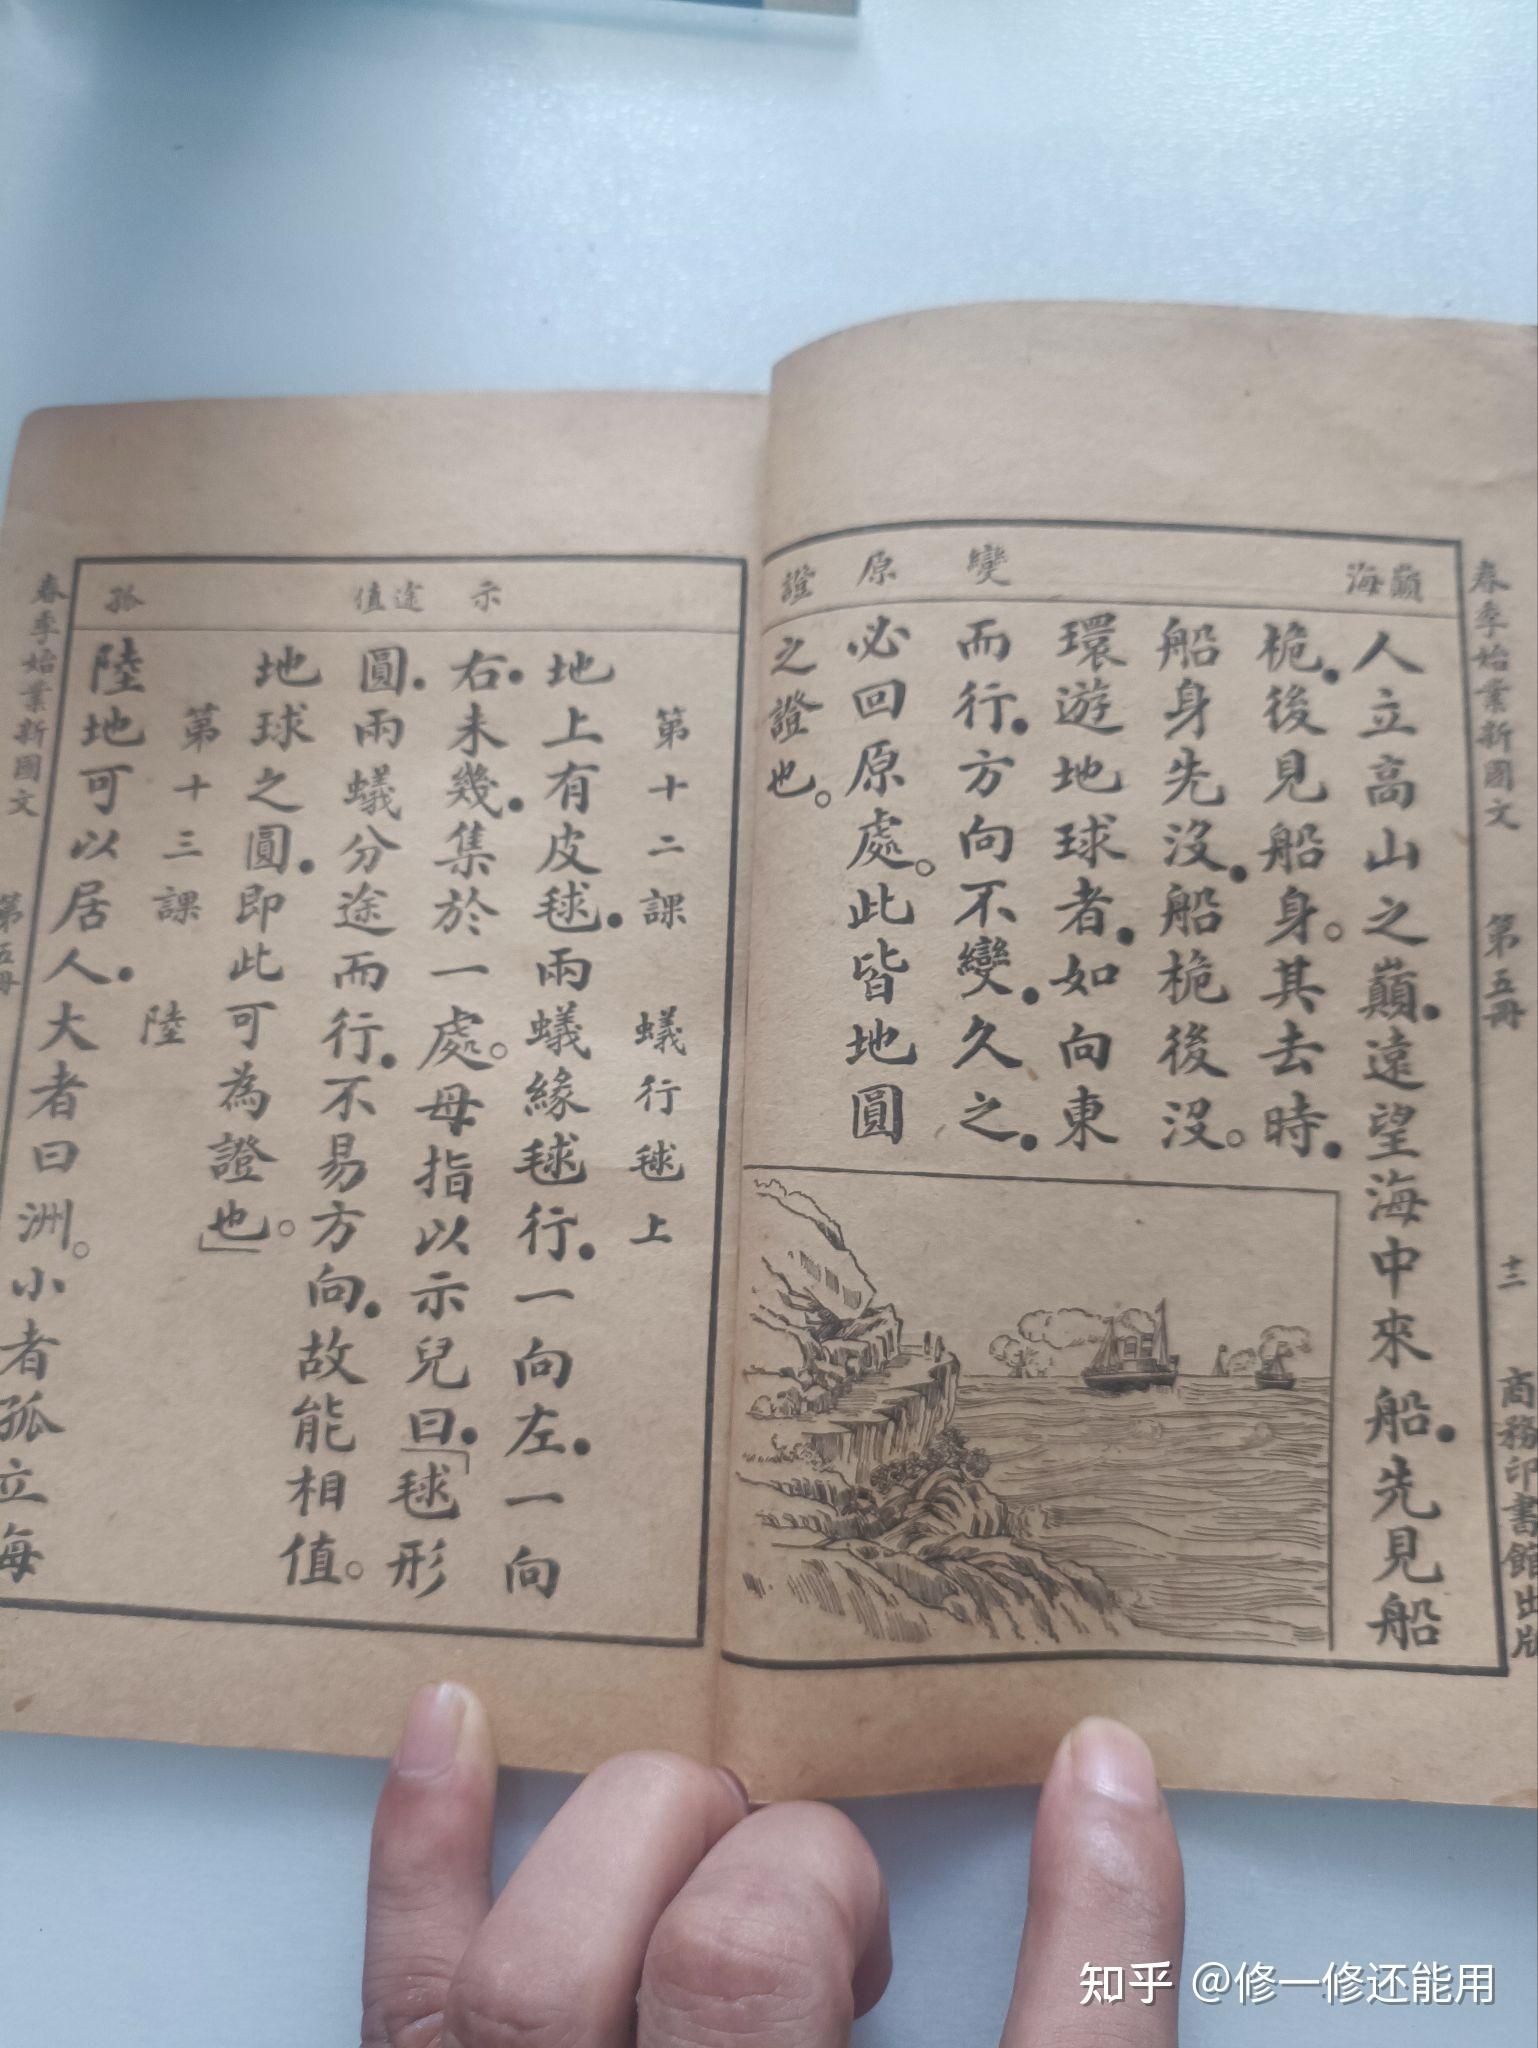 春季始業新國文 第五冊 十二 商務印書館出版
巔海
變
原
證
人立高山之巔.遠望海中來船.先見船
桅.後見船身。其去時.
船身先沒.船桅後沒。
環遊地球者.如向東
而行.方向不變.久之.
必回原處。此皆地圓
之證也。
示
途值
孤
第十二課 蟻行毬上
地上有皮毬.兩蟻緣毬行.一向左.一向
右.未幾.集於一處。母指以示兒曰.「毬形
圓.兩蟻分途而行.不易方向.故能相值。
地球之圓.即此可為證也」。
第十三課 陸
陸地可以居人.大者曰洲。小者孤立海
春季始業新國文 第五冊
知乎 @修一修还能用